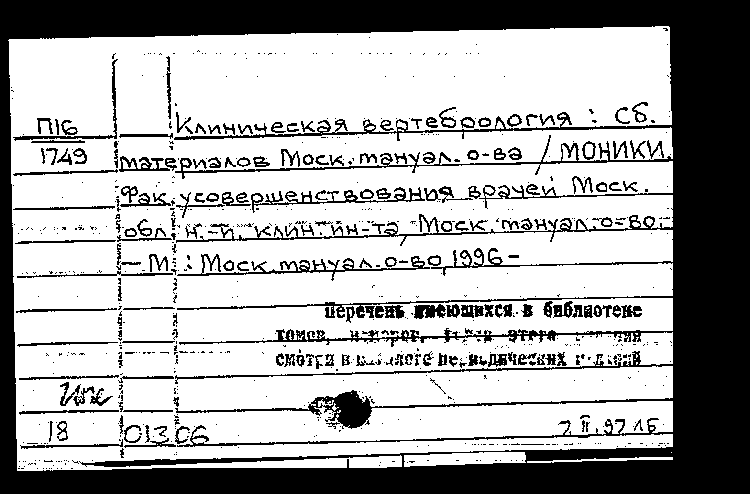 П16 Клиническая вертебрология : Сб.
1749 материалов Моск. мануал. о-ва / МОНИКИ.
Фак. усовершенствования врачей Моск.
обл. н.-и. клин. ин-та, Моск. мануал. о-во.
— М. : Моск. мануал. о-во, 1996 -
Перечень имеющихся в библиотеке
томов, номеров, этого
смотри в каталоге периодических
18 013 06 7.II.97 1Б